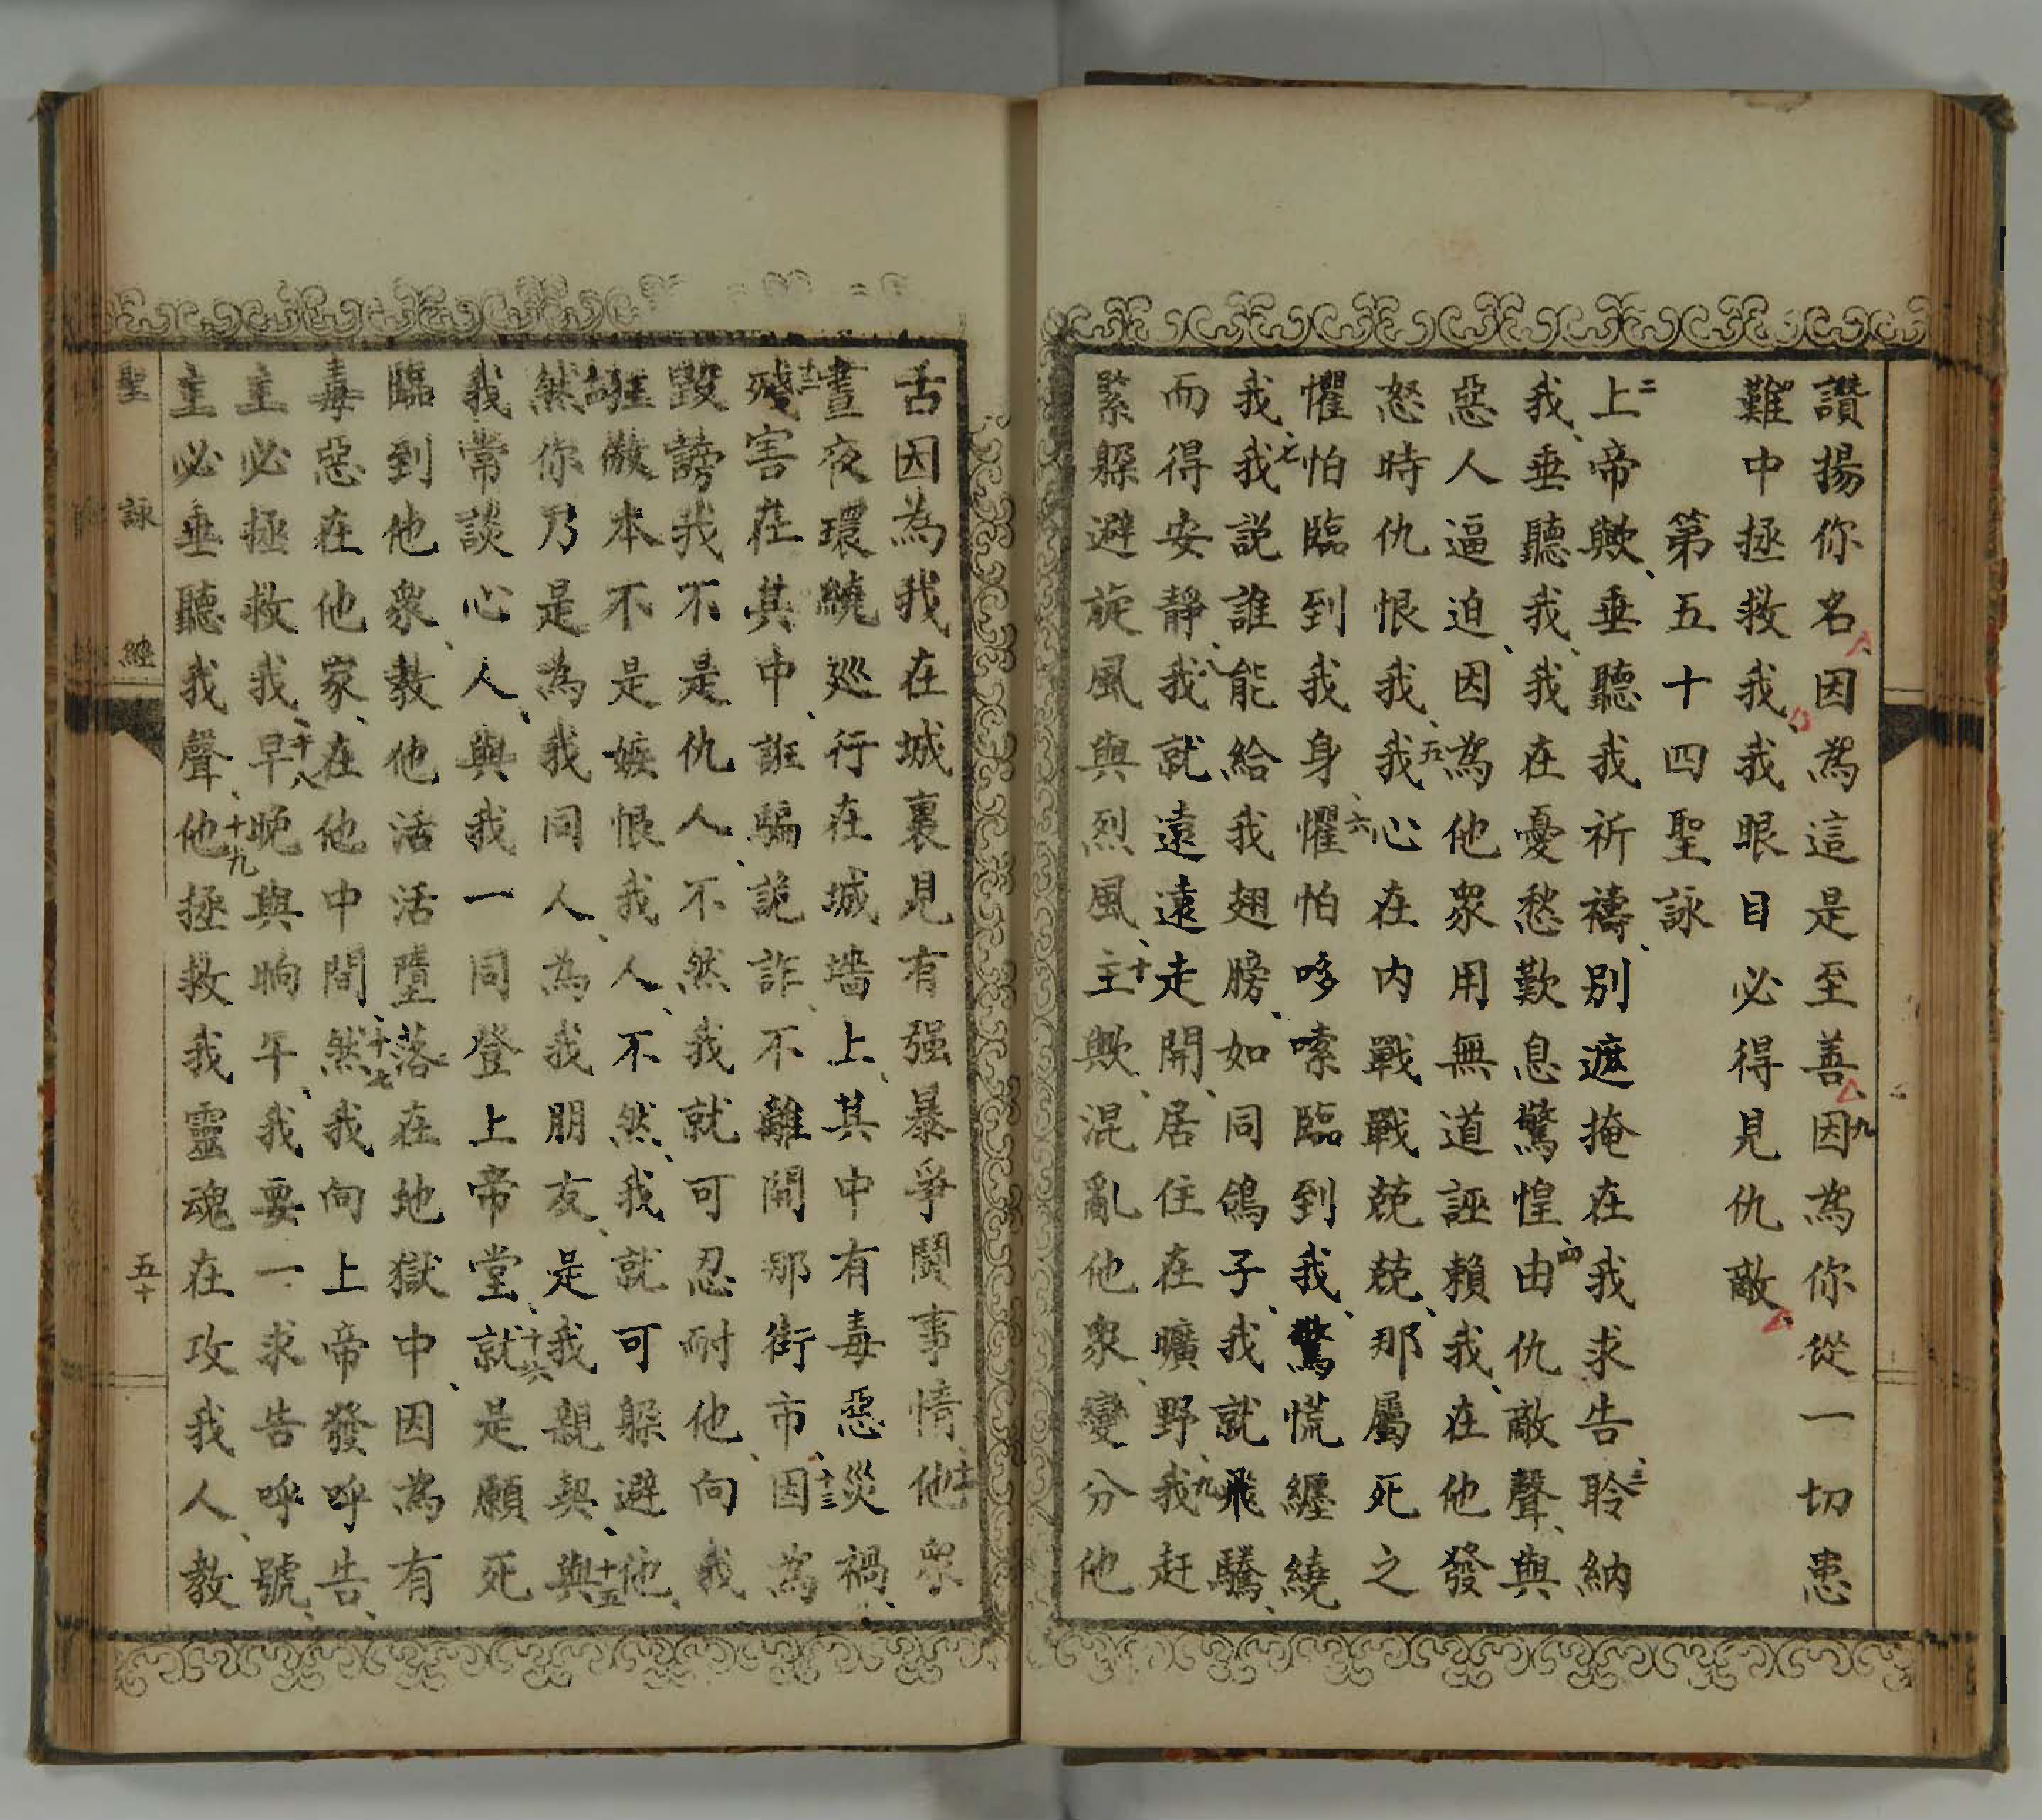 讚揚你名因為這是至善九因為你從一切患
難中拯救我我眼目必得見仇敵
第五十四聖詠
二上帝歟、垂聽我祈禱、別遮掩在我求告、三聆納
我、垂聽我、我在憂愁歎息驚惶、四由仇敵聲、與
惡人逼迫、因為他衆用無道誣賴我、在他發
怒時仇恨我、五我心在内戰戰兢兢、那屬死之
懼怕臨到我身、六懼怕哆嗦臨到我、驚慌纏繞
我、七我説誰能給我翅膀、如同鴿子、我就飛騰、
而得安靜、八我就遠遠走開、居住在曠野、九我赶
緊躲避旋風與烈風、十主歟、混亂他衆、變分他
舌因為我在城裏見有强暴爭鬪事情、十一他衆
晝夜環繞巡行在城墻上、其中有毒惡災禍、
十二殘害在其中、誑騙詭詐、不離開那街市、十三因為
毀謗我不是仇人、不然我就可忍耐他、向我
狂傲本不是嫉恨我人、不然、我就可躲避他、
十四然你乃是為我同人、為我朋友、是我親契、十五與
我常談心人、與我一同登上帝堂、十六就是願死
臨到他衆、敎他活活墮落在地獄中、因為有
毒惡在他家、在他中間、十七然我向上帝發呼告、
主必拯救我、十八早晚與晌午、我要一求告呼號、
主必垂聽我聲、十九他拯救我靈魂在攻我人、教
聖詠經
五十